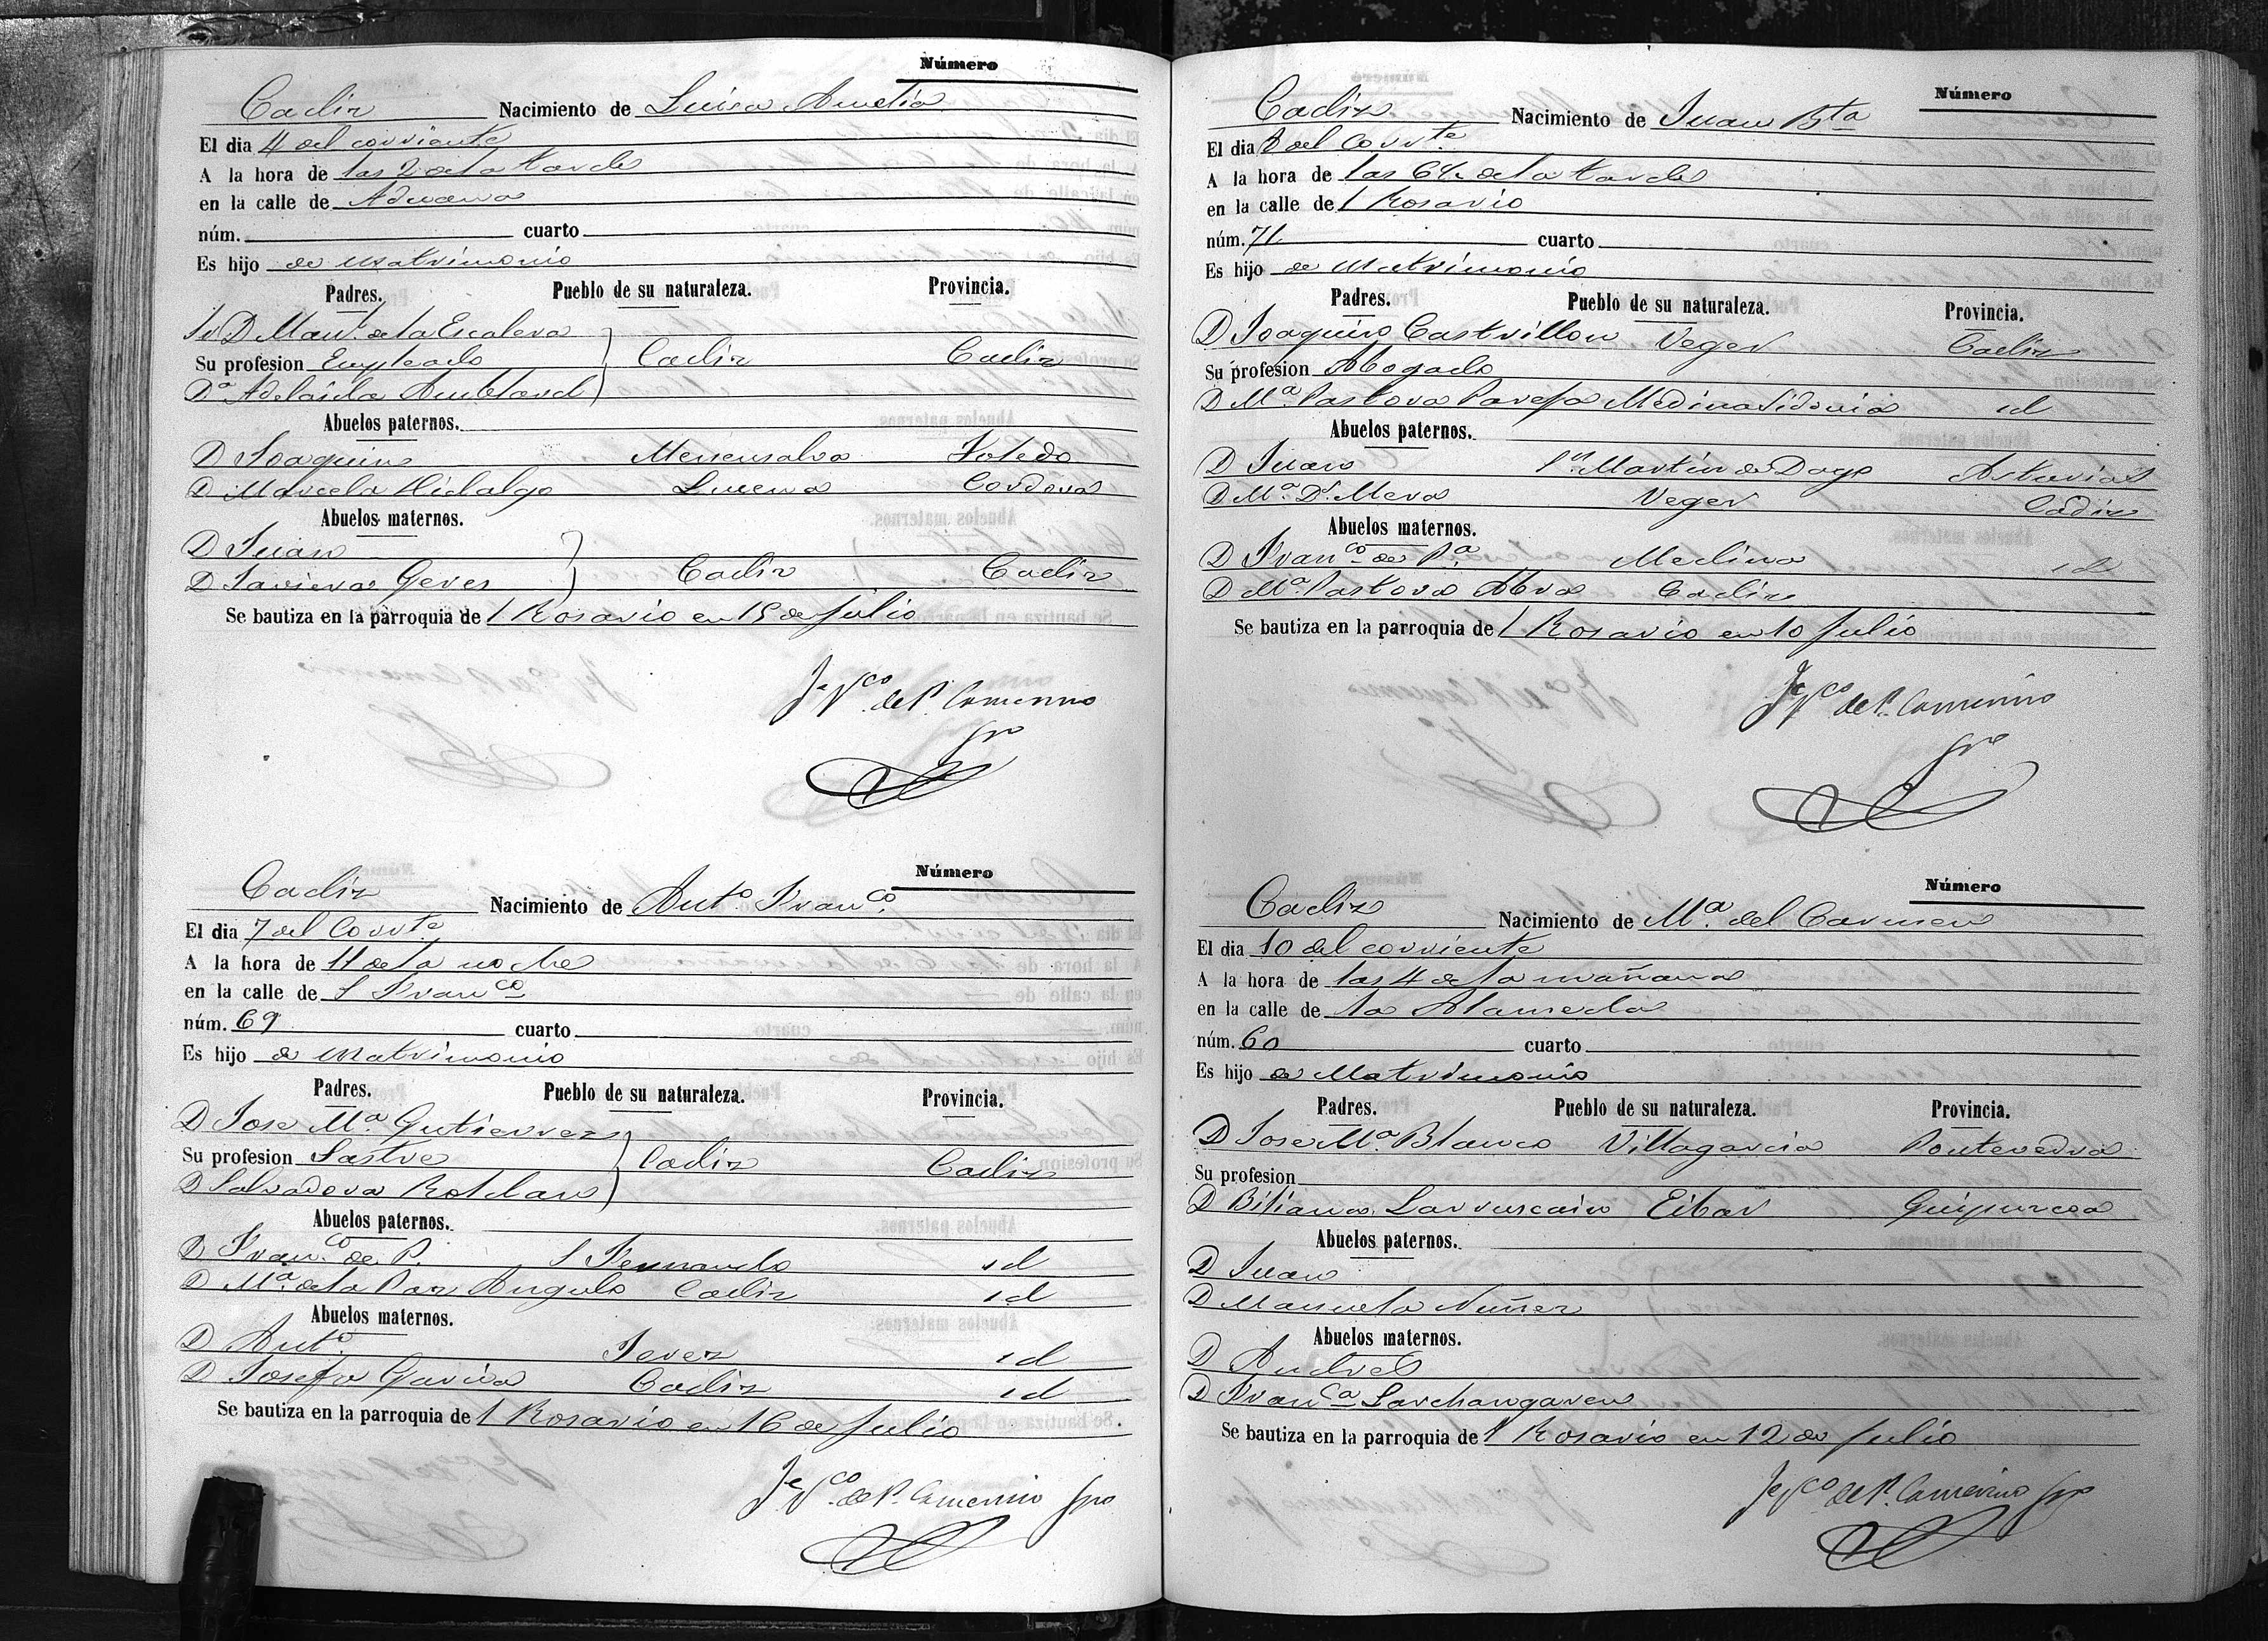 Número
Cadiz Nacimiento de Luisa Amelia
El dia 4 del corriente
A la hora de las 2 de la tarde
en la calle de Aduana
núm. cuarto
Es hijo de matrimonio
Padres. Pueblo de su naturaleza. Provincia.
D Manl. de la Escalera
Su profesion Empleado Cadiz Cadiz
Da Adelaida
Abuelos paternos.
D Joaquin Toledo
D Marcela Hidalgo Lucena Cordova
Abuelos maternos.
D Juan
D Javiera Cadiz Cadiz
Se bautiza en la parroquia de l Rosario en 15 de Julio
de P. Camerino
Número
Cadiz Nacimiento de Anto Franco.
El dia 7 del Corrte
A la hora de 11 de la noche
en la calle de S Franco
núm. 69 cuarto
Es hijo de matrimonio
Padres. Pueblo de su naturaleza. Provincia.
D Jose Ma Gutierrez
Su profesion Sastre Cadiz Cadiz
D Salvadora Roldan
Abuelos paternos.
D Franco de P. S Fernando id
D Ma de la Paz Angulo Cadiz id
Abuelos maternos.
D Anto. Jerez id
D Josefa Garcia Cadiz id
Se bautiza en la parroquia de l Rosario en 16 de Julio
de P. Camerino
Número
Cadiz Nacimiento de Juan Bta
El dia 8 del Corrte
A la hora de las de la tarde
en la calle de l Rosario
núm. 71 cuarto
Es hijo de Matrimonio
Padres. Pueblo de su naturaleza. Provincia.
D Joaquin Castrillon Veger Cadiz
Su profesion Abogado
D Ma. Pastora Medina Sidonia id
Abuelos paternos.
D Juan Sn Martin de Asturias
D Ma. Ds. Mera Veger Cadiz
Abuelos maternos.
D Franco de Pa. Medina id
D Ma. Pastora Cadiz
Se bautiza en la parroquia de l Rosario en 10 Julio
de P. Camerino
Número
Cadiz Nacimiento de Ma. del Carmen
El dia 10 del corriente
A la hora de las 4 de la mañana
en la calle de la Alameda
núm. 60 cuarto
Es hijo de Matrimonio
Padres. Pueblo de su naturaleza. Provincia.
D Jose Ma. Blanco Villagarcia Pontevedra
Su profesion
D Bibiana Larruscain Eibar Guipurcoa
Abuelos paternos.
D Juan
D Manuela Nuñez
Abuelos maternos.
D Andres
D Franca
Se bautiza en la parroquia de l Rosario en 12 de Julio
de P. Camerino